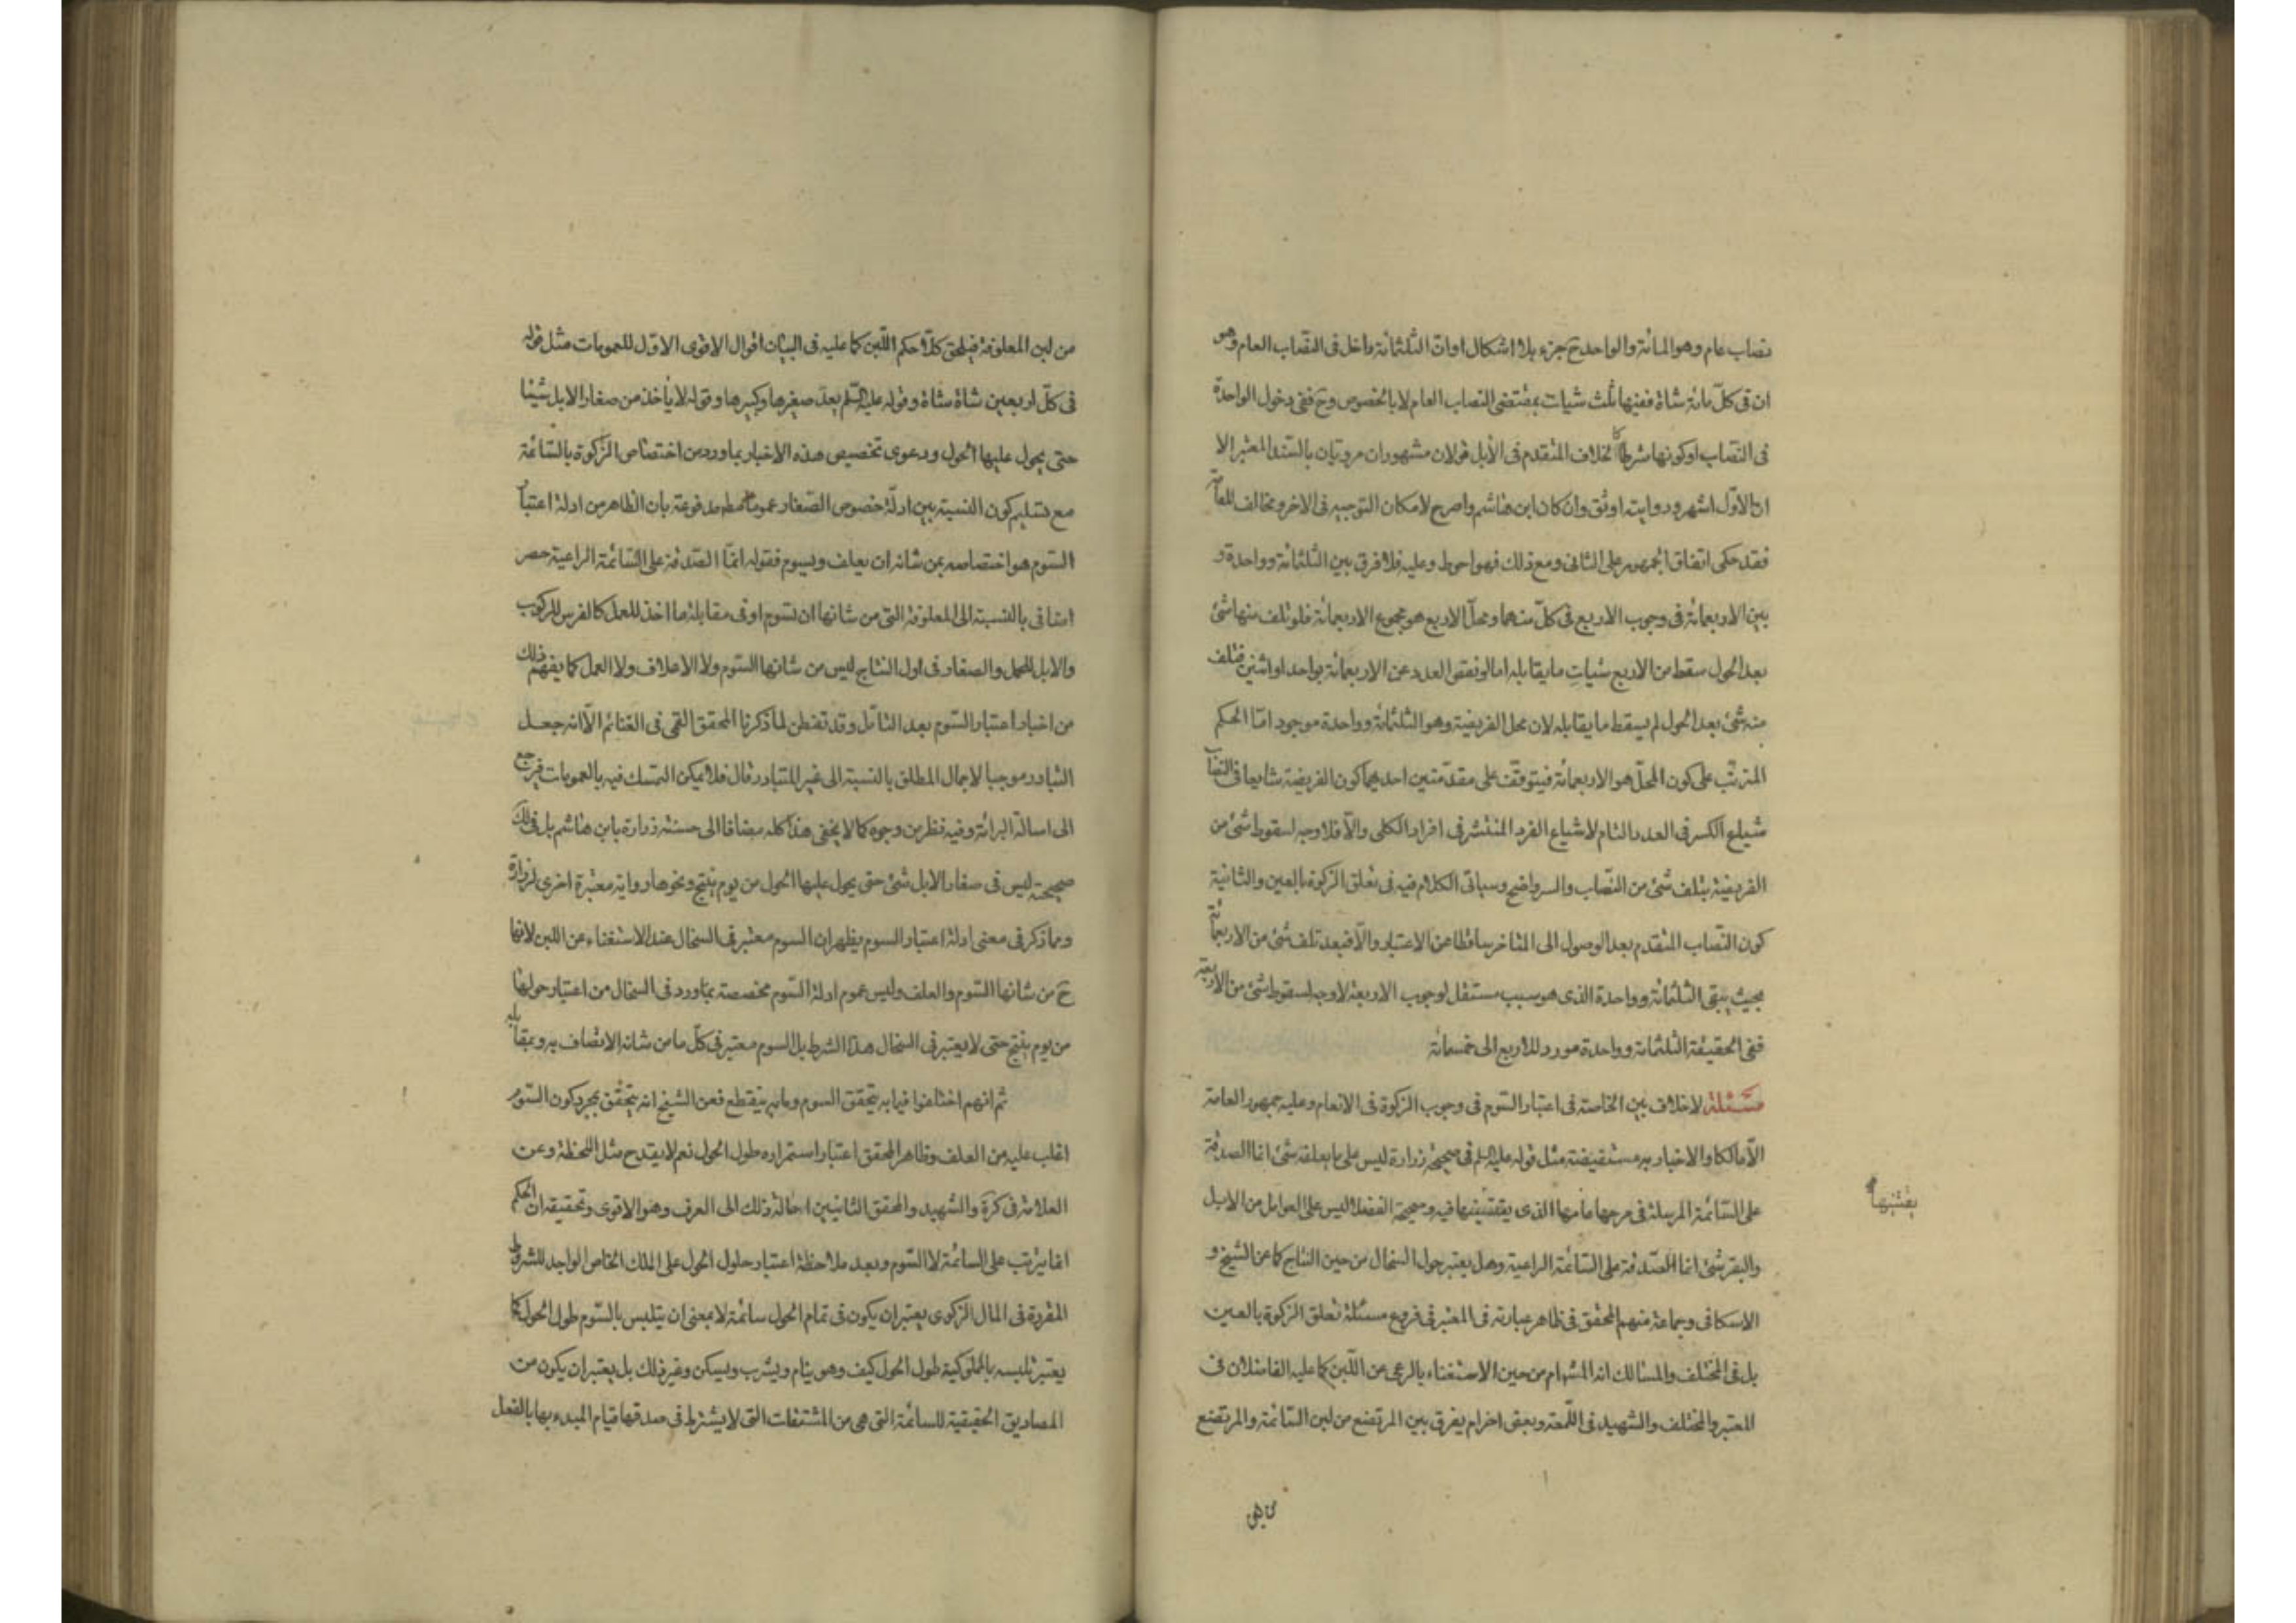 نصاب عام وهو المائة والواحد ح جزء بلا اشكال اوان الثلثمائة داخل فى النصاب العام وهو
ان فى كلّ مائة شاة ففيها ثلث شيات بمقتضى النصاب العام لا بالخصوص وح ففى دخول الواحدة
فى النصاب اوكونها شرطا كا لخلاف المتقدم فى الأبل قولان مشهوران مرويان بالسند المعتبر الا
ان الاوّل اشهر وروايته اوثق وان كان ابن هاشم واصرح لامكان التوجيه فى الاخر ومخالف للعامّة
فقد حكى اتفاق الجمهور على الثانى ومع ذلك فهو احوط وعليه فلا فرق بين الثلثمائة وواحدة و
بين الاربعمائة فى وجوب الاربع فى كلّ منهما ومحلّ الاربع هو مجموع الاربعمائة فلو تلف منها شئ
بعد الحول سقط من الاربع شياتٍ ما يقابله اما لو نقص العدد عن الاربعمائة بواحد او اثنين فتلف
منه شئ بعد الحول لم يسقط ما يقابله لان محل الفريضة وهو الثلثمائة وواحدة موجود امّا الحكم
المترتّب على كون المحلّ هو الاربعمائة فيتوقّف على مقدّمتين احديهما كون الفريضة شايعا فى النصاب
شياع الكسر فى العدد التام لا شياع الفرد المنتشر فى افراد الكلى والّا فلا وجه لسقوط شئ من
الفريضة بتلف شئ من النّصاب والسر واضح وسياتى الكلام فيه فى تعلق الزكوة بالعين والثانية
كون النّصاب المتقدم بعد الوصول الى المتاخر ساقطا عن الاعتبار والّا فبعد تلف شئ من الاربعمائة
بحيث يبقى الثلثمائة وواحدة الذى هو سبب مستقل لوجوب الاربعة لا وجه لسقوط شئ من الاربعة
ففى الحقيقة الثلثمائة وواحدة مورد للاربع الى خمسمائة
مسئلة لا خلاف بين الخاصة فى اعتبار السّوم فى وجوب الزكوة فى الانعام وعليه جمهور العامة
الّا مالكا والاخبار به مستفيضة مثل قوله عليه السلم فى صحيحة زرارة ليس على ما يعلف شئ انما الصدقة
على السّائمة المرسلة فى مرجها عامها الذى يقتنيها فيه وصحيحة الفضلا ليس على العوامل من الابل
يقتنيها
والبقر شئ انما الصّدقة على السّائمة الراعية وهل يعتبر حول السخال من حين النتاج كما عن الشيخ و
الاسكافى وجماعة منهم المحقق فى ظاهر عبارته فى المعتبر فى فروع مسئلة تعلق الزكوة بالعين
بل فى المختلف والمسالك انه المشهور ام من حين الاستغناء بالرعى عن اللّبن كما عليه الفاضلان فى
المعتبر والمختلف والشهيد فى اللّمعة وبعض اخر ام يفرق بين المرتضع من لبن السائمة والمرتضع
من لبن المعلوفة فيلحق كلّا حكم اللّبن كما عليه فى البيان اقوال الاقوى الاوّل للعمومات مثل قوله
فى كلّ اربعين شاة شاة وقوله عليه السّلم يعدّ صغيرها وكبيرها وقوله لا ياخذ من صغار الابل شيئا
حتى يحول عليها الحول ودعوى تخصيص هذه الاخبار بما ورد من اختصاص الزّكوة بالسّائمة
مع تسليم كون النسبة بين ادلّة خصوص الصّغار عموما مطلقا مدفوعة بان الظاهر من ادلة اعتبار
السّوم هو اختصاصه بمن شانه ان يعلف ويسوم فقوله انمّا الصّدقة على السّائمة الراعية حصر
اضافى بالنسبة الى المعلوفة التى من شانها ان تسوم او فى مقابلة ما اخذ للعمل كالفرس للركوب
والابل للحمل والصغار فى اول النتاج ليس من شانها السّوم ولا الاعلاف ولا العمل كما يفهم ذلك
من اخبار اعتبار السّوم بعد التامّل وقد تفطن لما ذكرنا المحقق القمى فى الغنائم الّا انه جعل
التبادر موجبا لاجمال المطلق بالنسبة الى غير المتبادر قال فلا يمكن التمسك فيه بالعمومات فيرجع
الى اصالة البرائة وفيه نظر من وجوه كما لا يخفى هذا كله مضافا الى حسنة زرارة بابن هاشم بل قيل
صحيحة ليس فى صغار الابل شئ حتى يحول عليها الحول من يوم ينتج ونحوها رواية معتبرة اخرى لزرارة
ومما ذكر فى معنى ادلة اعتبار السوم يظهر ان السوم معتبر فى السخال عند الاستغناء عن اللبن لانها
ح من شانها السّوم والعلف وليس عموم ادلة السّوم مخصصة بما ورد فى السخال من اعتبار حولها
من يوم ينتج حتى لا يعتبر فى السخال هذا الشرط بل السوم معتبر فى كلّ ما من شانه الاتصاف به وبمقابله
ثم انهم اختلفوا فيما به يتحقق السوم وما به ينقطع فعن الشيخ انه يتحقق بمجرد كون السّوم
اغلب عليه من العلف وظاهر المحقق اعتبار استمراره طول الحول نعم لا يقدح مثل اللحظة وعن
العلامة فى كرة والشهيد والمحقق الثانيين احالة ذلك الى العرف وهو الاقوى وتحقيقه ان الحكم
انما يترتب على السائمة لا السّوم وبعد ملاحظة اعتبار حلول الحول على الملك الخاص الواجد للشروط
المقررة فى المال الزكوى يعتبر ان يكون فى تمام الحول سائمة لا بمعنى ان يتلبس بالسّوم طول الحول كما
يعتبر تلبسه بالمملوكية طول الحول كيف وهو ينام ويشرب ويسكن وغير ذلك بل يعتبر ان يكون من
المصاديق الحقيقية للسائمة التى هى من المشتقات التى لا يشترط فى صدقها قيام المبدء بها بالفعل